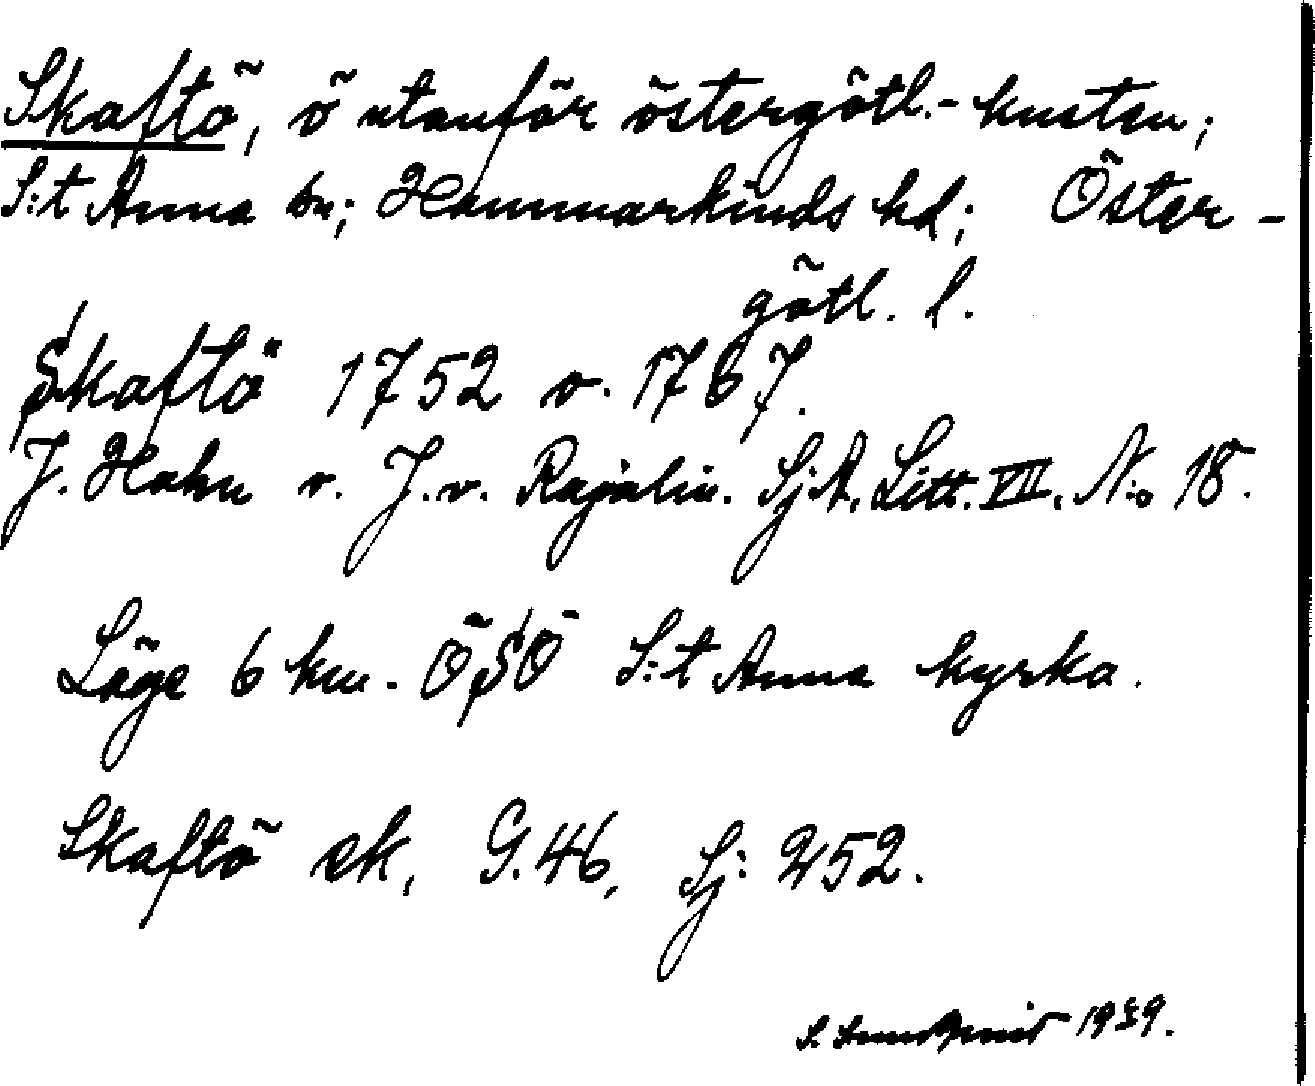 Skaftö, ö utanför östergötl.-kusten;
S:t Anna sn; Hammarkinds hd; Öster-
götl. l.
Skaftö 1752 o. 1767.
J. Hahn o. J. v. Rajalin. Sj.A. Litt. VII. No 18.
Läge 6 km. ÖSÖ S:t Anna kyrka.
Skaftö ek, G. 46, Sj: 252.
S. 1939.